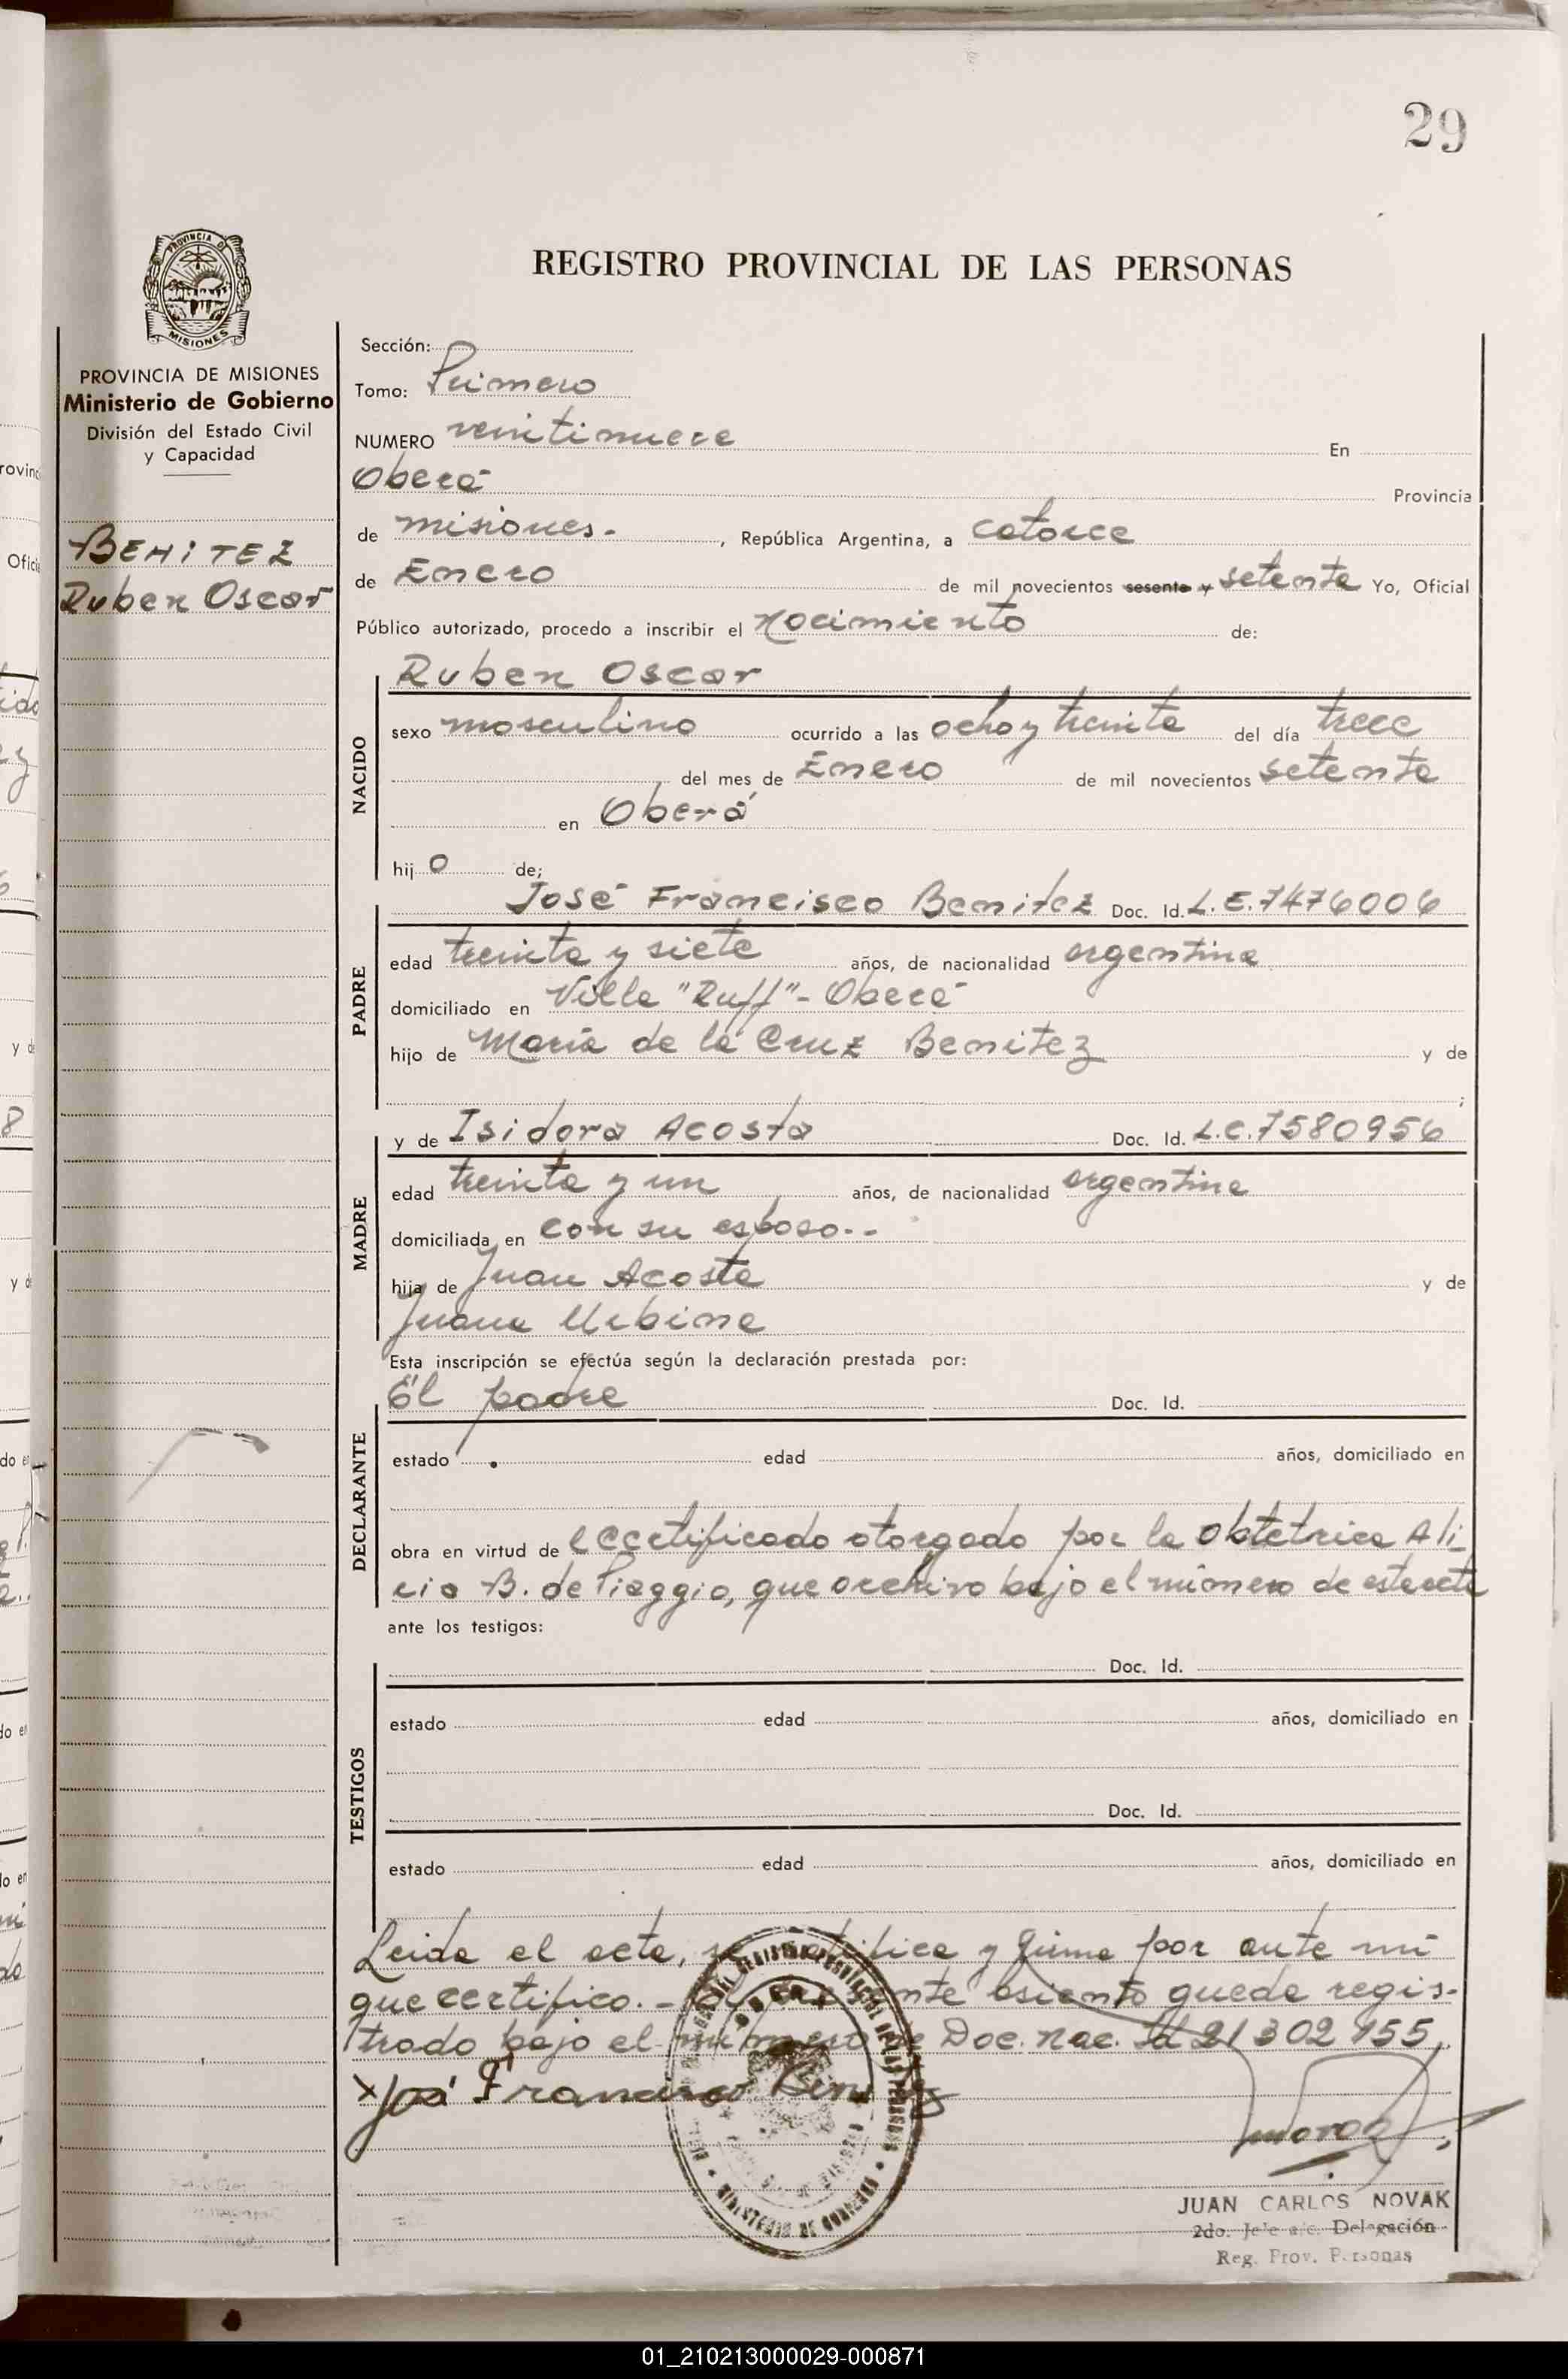 29
PROVINCIA DE
MISIONES
REGISTRO PROVINCIAL DE LAS PERSONAS
PROVINCIA DE MISIONES
Ministerio de Gobierno
División del Estado Civil
y Capacidad
BENITEZ
Ruben Oscar
Sección:
Tomo: Primero
NUMERO veintinueve En
Oberá Provincia
de misiones.- , República Argentina, a catorce
de Enero de mil novecientos sesenta y setenta Yo, Oficial
Público autorizado, procedo a inscribir el nacimiento de:
Ruben Oscar
NACIDO
sexo masculino ocurrido a las ocho y treinta del día trece
del mes de Enero de mil novecientos setenta
en Oberá
hij o de;
José Francisco Benitez Doc. Id. L.E. 7476006
PADRE
edad treinta y siete años, de nacionalidad argentina
domiciliado en Villa "Ruff"- Oberá
hijo de María de la Cruz Benitez y de
;
y de Isidora Acosta Doc. Id. L.C. 7580956
MADRE
edad treinta y un años, de nacionalidad argentina
domiciliada en con su esposo.-
hija de Juan Acosta y de
Juana Urbina
Esta inscripción se efectúa según la declaración prestada por:
El padre Doc. Id.
DECLARANTE
estado edad años, domiciliado en
obra en virtud de certificado otorgado por la obtetrica Ali-
cia B. de Piaggio, que archivo bajo el número de este acta
ante los testigos:
Doc. Id.
TESTIGOS
estado edad años, domiciliado en
Doc. Id.
estado edad años, domiciliado en
Leida el acta, se ratifica y firma por ante mi
que certifico.- El presente asiento queda regis-
trado bajo el número de Doc. nac. Id 21302155
x José Francisco Benitez
JUAN CARLOS NOVAK
2do. Jefe a/c. Delegación
Reg. Prov. Personas
01_210213000029-000871